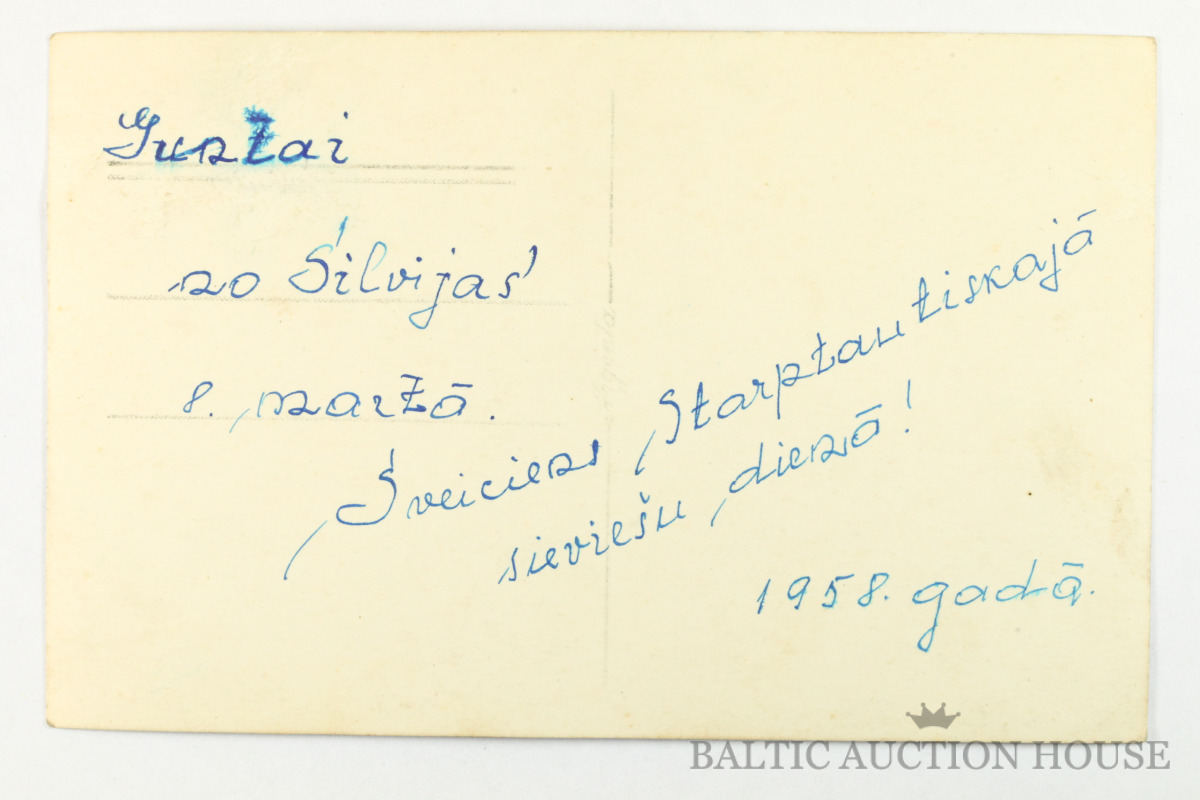 Guntai
no Silvijas
8. martā.
Sveiciens Starptautiskajā
sieviešu dienā!
1958. gadā.
BALTIC AUCTION HOUSE